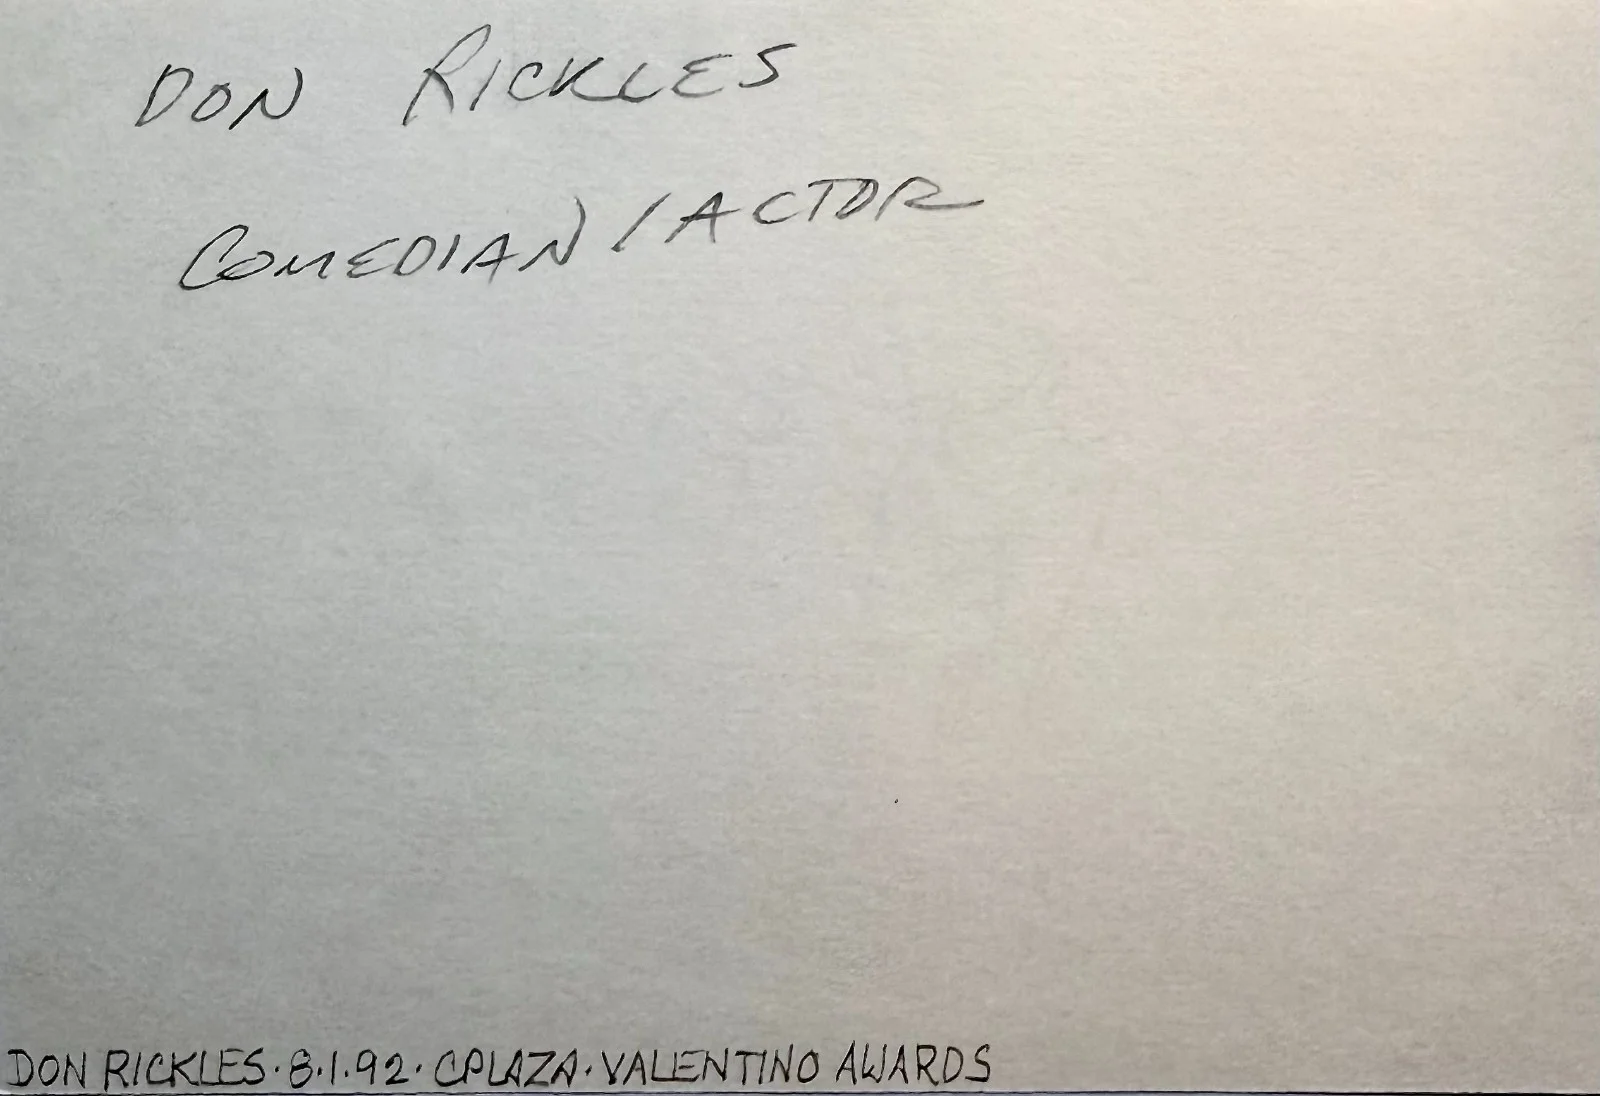 DON RICKLES
COMEDIAN/ACTOR
DON RICKLES·8·1·92·CPLAZA·VALENTINO AWARDS